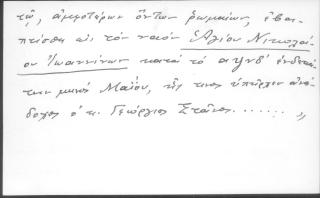 τῷ, ἀμφοτέρων ὄντων ῥωμαίων, ἐβα-
πτίσθη εἰς τὸν ναὸν Ἁγίου Νικολά-
ου Ἰωαννίνων κατὰ τὸ αψνδ'
των μηνὸς Μαΐου, τῆς ὑπῆρχεν ἀνά-
δοχος ὁ κ. Γεώργιος Στάϊνος.......,,